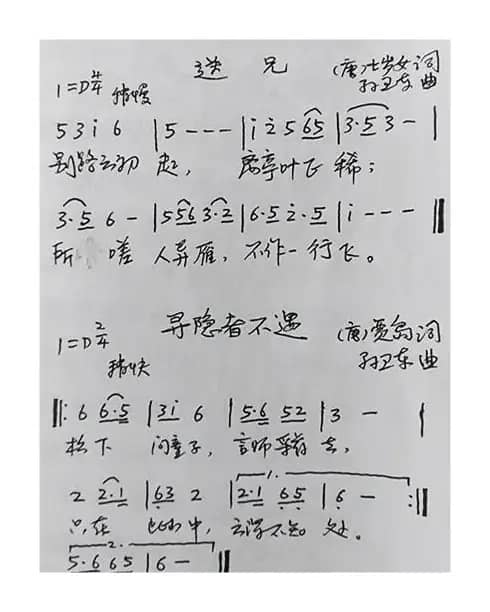 送兄
(唐)七岁女词
1=D 4/4 稍慢 孙卫东曲
5 3 i 6 | 5 - - - | i 2 5 65 | 3·5 3 - |
别路云初起, 离亭叶飞稀;
3·5 6 - | 5 56 3·2 | 6·5 i·5 | i - - - ‖
所嗟人异雁, 不作一行飞。
寻隐者不遇
(唐)贾岛词
1=D 2/4 稍快 孙卫东曲
‖: 6 6·5 | 3i 6 | 5·6 52 | 3 - |
松下问童子, 言师采药去,
1.
2 2·1 | 63 2 | 2·1 65 | 6 - :‖
只在此山中, 云深不知处。
2.
5·6 65 | 6 - ‖